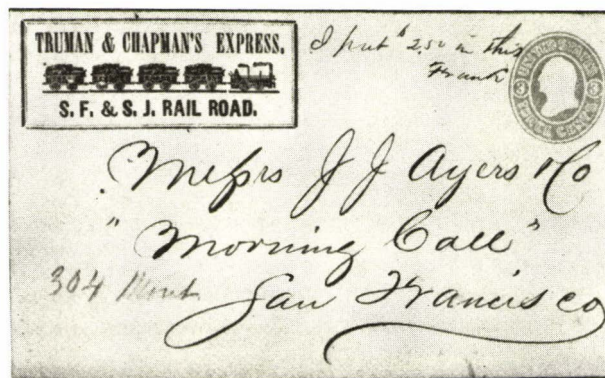 TRUMAN & CHAPMAN'S EXPRESS.
S. F. & S. J. RAIL ROAD.
I put $2.50 in this
Frank
UNITED STATES
3 3
THREE CENTS
Messrs J J Ayers & Co
"Morning Call"
304 Mont
San Francisco